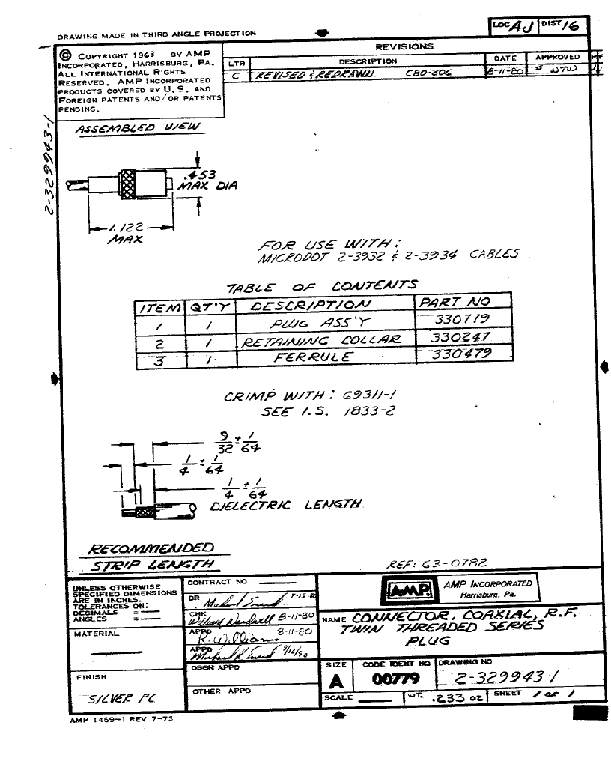 DRAWING MADE IN THIRD ANGLE PROJECTION
LOC AJ DIST 16
© COPYRIGHT 1968 BY AMP
INCORPORATED, HARRISBURG, PA.
ALL INTERNATIONAL RIGHTS
RESERVED. AMP INCORPORATED
PRODUCTS COVERED BY U.S. AND
FOREIGN PATENTS AND/OR PATENTS
PENDING.
REVISIONS
LTR DESCRIPTION DATE APPROVED
C REVISED & REDRAWN 8-11-80
2-329943-1
ASSEMBLED VIEW
.453
MAX DIA
1.122
MAX
FOR USE WITH:
MICRODOT 2-3932 & 2-3934 CABLES
TABLE OF CONTENTS
ITEM QT'Y DESCRIPTION PART NO
1 1 PLUG ASS'Y 330719
2 1 RETAINING COLLAR 330247
3 1 FERRULE 330479
CRIMP WITH: 69311-1
SEE I.S. 1833-2
9/32 ± 1/64
1/4 ± 1/64
1/4 ± 1/64
DIELECTRIC LENGTH
RECOMMENDED
STRIP LENGTH
REF: 63-0782
UNLESS OTHERWISE
SPECIFIED DIMENSIONS
ARE IN INCHES.
TOLERANCES ON:
DECIMALS
ANGLES
MATERIAL
FINISH
SILVER PL
CONTRACT NO
DR
CHK 8-11-80
APPD R. Williams 8-11-80
APPD
DSGN APPD
OTHER APPD
AMP
AMP INCORPORATED
Harrisburg, Pa.
NAME CONNECTOR, COAXIAL, R.F.
TWIN THREADED SERIES
PLUG
SIZE A
CODE IDENT NO 00779
DRAWING NO 2-329943 1
SCALE WT. .233 oz SHEET 1 OF 1
AMP 1469-1 REV 7-73